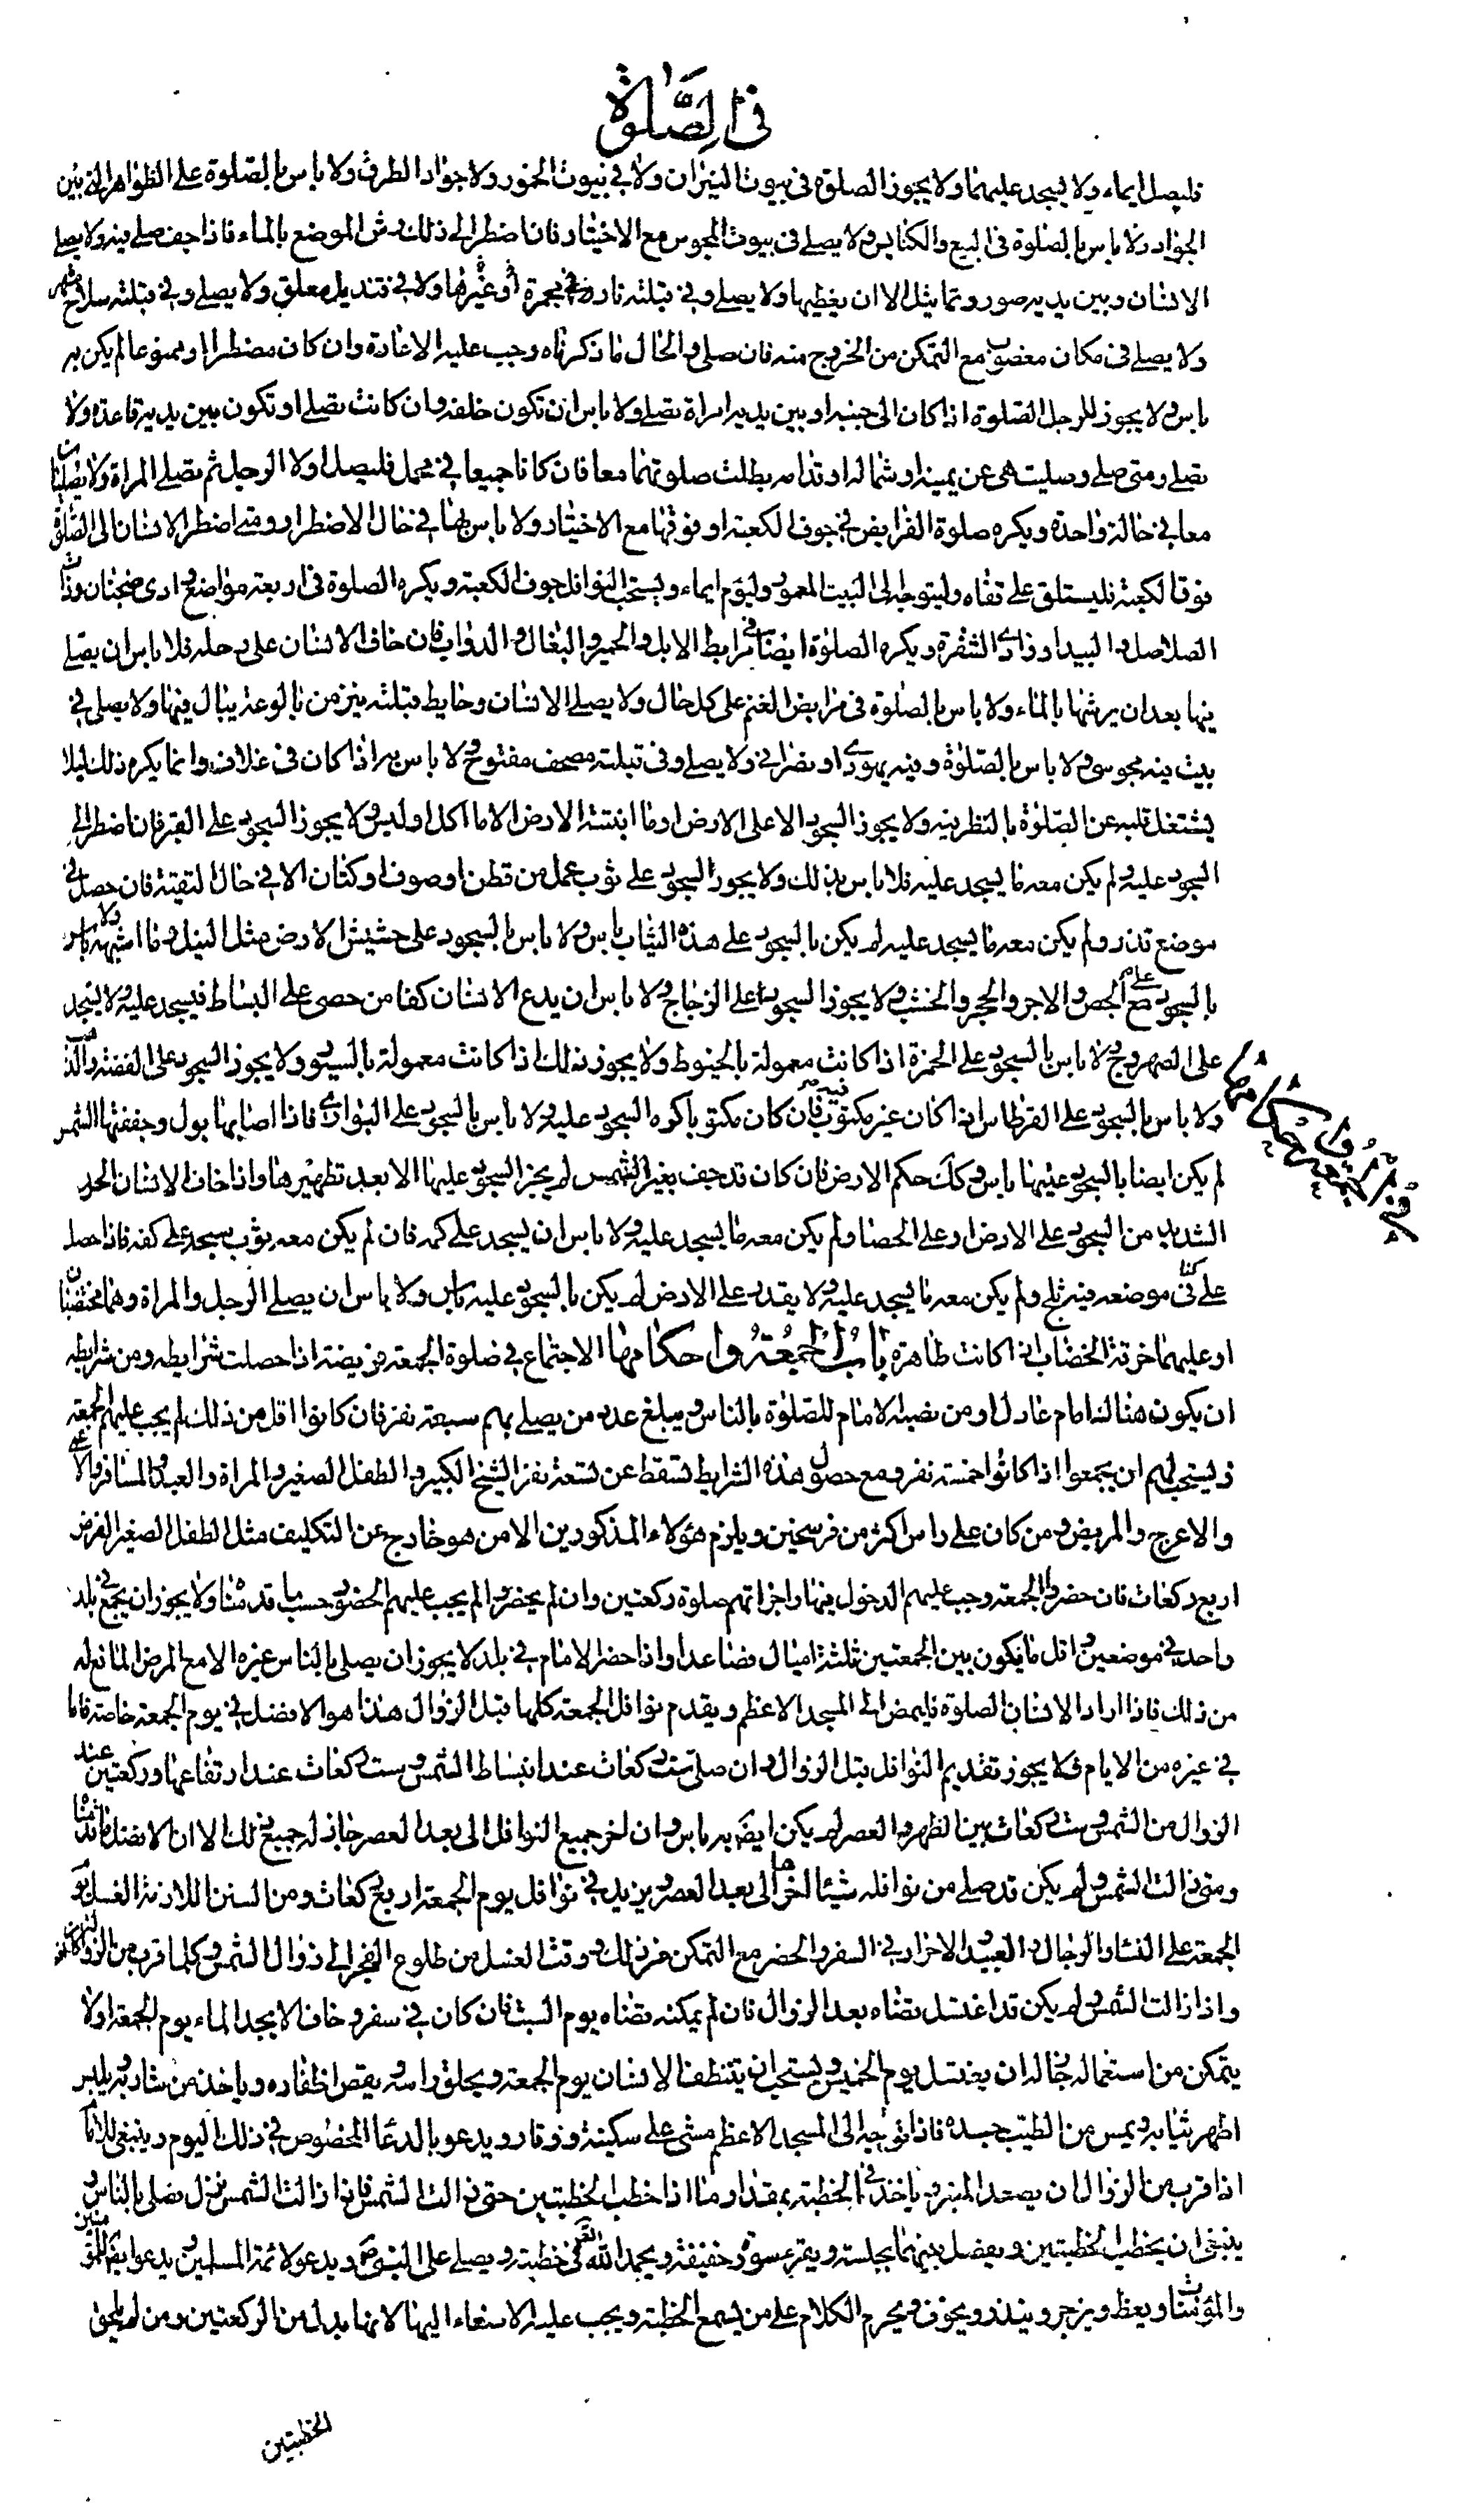 في الصَّلوة
فليصل ايماء ولا يسجد عليهما ولا يجوز الصلوة في بيوت النيران ولا في بيوت الخمور ولا جواد الطرق ولا باس بالصلوة على الظواهر التي بين
الجواد ولا باس بالصلوة في البيع والكنايس ولا يصلى في بيوت المجوس مع الاختيار فان اضطر الى ذلك رش الموضع بالماء فاذا جف صلى فيه ولا يصلى
الانسان وبين يديه صور وتماثيل الا ان يغطيها ولا يصلى وفي قبلته نار في مجمرة او غيرها ولا في قنديل معلق ولا يصلى وفي قبلته سلاح مشهر
ولا يصلى في مكان مغصوب مع التمكن من الخروج منه فان صلى والحال ما ذكرناه وجب عليه الاعادة وان كان مضطرا او ممنوعا لم يكن به
باس ولا يجوز للرجل الصلوة اذا كان الى جنبه او بين يديه امراة تصلى ولا باس ان تكون خلفه وان كانت تصلى او تكون بين يديه قاعدة ولا
تصلى ومتى صلى وصليت هي عن يمينه او شماله او قدامه بطلت صلوتهما معا فان كانا جميعا في محمل فليصل اولا الرجل ثم تصلى المراة ولا يصليان
معا في حالة واحدة ويكره صلوة الفرايض في جوف الكعبة او فوقها مع الاختيار ولا باس بهما في حال الاضطرار ومتى اضطر الانسان الى الصلوة
فوق الكعبة فليستلق على قفاه وليتوجه الى البيت المعمور وليؤم ايماء ويستحب النوافل جوف الكعبة ويكره الصلوة في اربعة مواضع وادى ضجنان وذات
الصلاصل والبيداء وذى الشقرة ويكره الصلوة ايضا في مرابط الابل والحمير والبغال والدواب فان خاف الانسان على رحله فلا باس ان يصلى
فيها بعد ان يرشها بالماء ولا باس بالصلوة في مرابض الغنم على كل حال ولا يصلى الانسان وحايط قبلته ينز من بالوعة يبال فيها ولا يصلى في
بيت فيه مجوسى ولا باس بالصلوة وفيه يهودى او نصرانى ولا يصلى وفي قبلته مصحف مفتوح ولا باس به اذا كان في غلاف وانما يكره ذلك ليلا
يشتغل قلبه عن الصلوة بالنظر فيه ولا يجوز السجود الا على الارض او ما انبتته الارض الا ما اكل او لبس ولا يجوز السجود على القير فان اضطر الى
السجود عليه ولم يكن معه ما يسجد عليه فلا باس بذلك ولا يجوز السجود على ثوب عمل من قطن او صوف او كتان الا في حال التقية فان حصل في
موضع قذر ولم يكن معه ما يسجد عليه لم يكن بالسجود على هذه الثياب باس ولا باس بالسجود على حشيش الارض مثل الثيل وما اشبهه ولا باس
بالسجود على الجص والاجر والحجر والخشب ولا يجوز السجود على الزجاج ولا باس ان يدع الانسان كفا من حصى على البساط فيسجد عليه ولا يسجد
على الصهروج ولا باس بالسجود على الخمرة اذا كانت معمولة بالخيوط ولا يجوز ذلك اذا كانت معمولة بالسيور ولا يجوز السجود على الفضة والذهب
ولا باس بالسجود على القرطاس اذا كان غير مكتوب فيه فان كان مكتوبا كره السجود عليه ولا باس بالسجود على البوارى فاذا اصابها بول وجففتها الشمس
لم يكن ايضا بالسجود عليها باس وكك حكم الارض فان كان قد جف بغير الشمس لم يجز السجود عليها الا بعد تطهيرها واذا خاف الانسان الحر
الشديد من السجود على الارض او على الحصا ولم يكن معه ما يسجد عليه ولا باس ان يسجد على كمه فان لم يكن معه ثوب سجد على كفه فاذا حصل
على موضعه فيه ثلج ولم يكن معه ما يسجد عليه ولا يقدر على الارض لم يكن بالسجود عليه باس ولا باس ان يصلى الرجل والمراة وهما مختضبان
او عليهما خرقة الخضاب اذا كانت طاهرة بابُ الْجُمُعَةِ وَاحكامها الاجتماع في صلوة الجمعة فريضة اذا حصلت شرايطه ومن شرايطه
ان يكون هناك امام عادل او من نصبه الامام للصلوة بالناس ويبلغ عدد من يصلى بهم سبعة نفر فان كانوا اقل من ذلك لم يجب عليهم الجمعة
ويستحب لهم ان يجمعوا اذا كانوا خمسة نفر ومع حصول هذه الشرايط تسقط عن تسعة نفر الشيخ الكبير والطفل الصغير والمراة والعبد والمسافر والاعمى
والاعرج والمريض ومن كان على راس اكثر من فرسخين ويلزم هؤلاء المذكورين الا من هو خارج عن التكليف مثل الطفل الصغير الفرض
اربع ركعات فان حضروا الجمعة وجب عليهم الدخول فيها واجزاتهم صلوة ركعتين وان لم يحضروا لم يجب عليهم الحضور حسب ما قدمنا ولا يجوز ان يجمع في بلد
واحد في موضعين واقل ما يكون بين الجمعتين ثلثة اميال فصاعدا واذا حضر الامام في بلد لا يجوز ان يصلى بالناس غيره الا مع المرض المانع له
من ذلك فاذا اراد الانسان الصلوة فليمض الى المسجد الاعظم ويقدم نوافل الجمعة كلها قبل الزوال هذا هو الافضل في يوم الجمعة خاصة فاما
في غيره من الايام فلا يجوز تقديم النوافل قبل الزوال وان صلى ست ركعات عند انبساط الشمس وست ركعات عند ارتفاعها وركعتين عند
الزوال من الشمس وست ركعات بين الظهر والعصر لم يكن ايضَ به باس وان اخر جميع النوافل الى بعد العصر جاز له جميع ذلك الا ان الافضل ما قدمناه
ومتى زالت الشمس ولم يكن قد صلى من نوافله شيئا اخرها الى بعد العصر ويزيد في نوافل يوم الجمعة اربع ركعات ومن السنن اللازمة الغسل يوم
الجمعة على النساء والرجال والعبيد والاحرار في السفر والحضر مع التمكن من ذلك ووقت الغسل من طلوع الفجر الى زوال الشمس وكلما قرب من الزوال كان افضل
واذا زالت الشمس ولم يكن قد اغتسل قضاه بعد الزوال فان لم يمكنه قضاه يوم السبت فان كان في سفر وخاف الا يجد الماء يوم الجمعة اولا
يتمكن من استعماله جاز له ان يغتسل يوم الخميس ويستحب ان يتنظف الانسان يوم الجمعة ويحلق راسه ويقص اظفاره وياخذ من شاربه ويلبس
اطهر ثيابه ويمس من الطيب جسده فاذا توجه الى المسجد الاعظم مشى على سكينة ووقار ويدعو بالدعا المخصوص في ذلك اليوم وينبغى للامام
اذا قرب من الزوال ان يصعد المنبر وياخذ في الخطبة بمقدار ما اذا خطب الخطبتين حتى زالت الشمس فاذا زالت الشمس نزل يصلى بالناس و
ينبغى ان يخطب الخطبتين ويفصل بينهما بجلسة ويقرء سورة خفيفة ويحمد الله تع في خطبته ويصلى على النبى ص ويدعو لائمة المسلمين ويدعو ايضَ للمؤمنين
والمؤمنات ويعظ ويزجر وينذر ويخوف ويحرم الكلام على من يسمع الخطبة ويجب عليه الاصغاء اليها لانها بدل من الركعتين ومن لم يلحق
الخطبتين